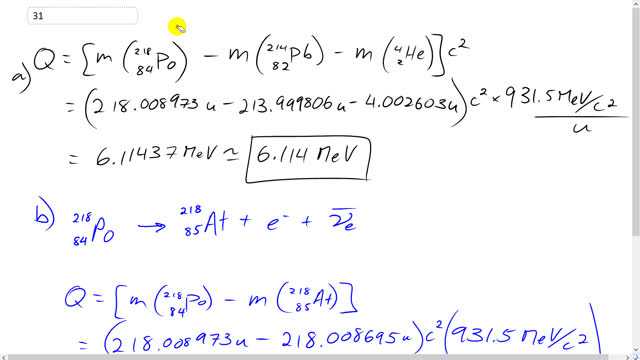 31
a) Q = [m(²¹⁸₈₄Po) - m(²¹⁴₈₂Pb) - m(⁴₂He)]c²
= (218.008973u - 213.999806u - 4.002603u)c² × 931.5 MeV/c²/u
= 6.11437 MeV ≃ 6.114 MeV
b) ²¹⁸₈₄Po → ²¹⁸₈₅At + e⁻ + ν̅ₑ
Q = [m(²¹⁸₈₄Po) - m(²¹⁸₈₅At)]
= (218.008973u - 218.008695u)c²(931.5 MeV/c²)